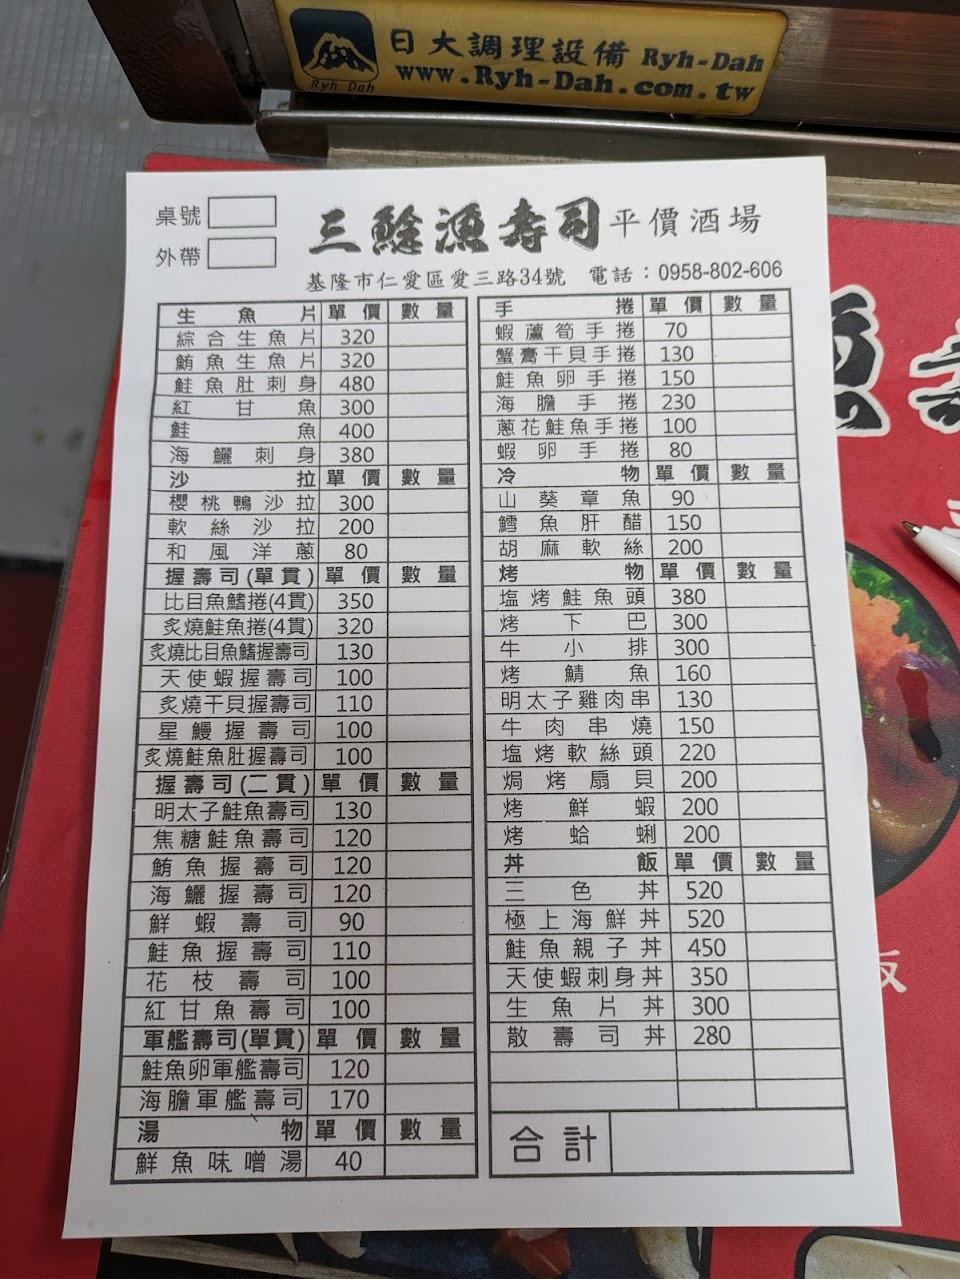 日大調理設備 Ryh-Dah
www.Ryh-Dah.com.tw
Ryh Dah
桌號
外帶
三鯰漁壽司 平價酒場
基隆市仁愛區愛三路34號 電話：0958-802-606
生魚片 單價 數量
綜合生魚片 320
鮪魚生魚片 320
鮭魚肚刺身 480
紅甘魚 300
鮭魚 400
海鱺刺身 380
沙拉 單價 數量
櫻桃鴨沙拉 300
軟絲沙拉 200
和風洋蔥 80
握壽司(單貫) 單價 數量
比目魚鰭捲(4貫) 350
炙燒鮭魚捲(4貫) 320
炙燒比目魚鰭握壽司 130
天使蝦握壽司 100
炙燒干貝握壽司 110
星鰻握壽司 100
炙燒鮭魚肚握壽司 100
握壽司(二貫) 單價 數量
明太子鮭魚壽司 130
焦糖鮭魚壽司 120
鮪魚握壽司 120
海鱺握壽司 120
鮮蝦壽司 90
鮭魚握壽司 110
花枝壽司 100
紅甘魚壽司 100
軍艦壽司(單貫) 單價 數量
鮭魚卵軍艦壽司 120
海膽軍艦壽司 170
湯物 單價 數量
鮮魚味噌湯 40
手捲 單價 數量
蝦蘆筍手捲 70
蟹膏干貝手捲 130
鮭魚卵手捲 150
海膽手捲 230
蔥花鮭魚手捲 100
蝦卵手捲 80
冷物 單價 數量
山葵章魚 90
鱈魚肝醋 150
胡麻軟絲 200
烤物 單價 數量
塩烤鮭魚頭 380
烤下巴 300
牛小排 300
烤鯖魚 160
明太子雞肉串 130
牛肉串燒 150
塩烤軟絲頭 220
焗烤扇貝 200
烤鮮蝦 200
烤蛤蜊 200
丼飯 單價 數量
三色丼 520
極上海鮮丼 520
鮭魚親子丼 450
天使蝦刺身丼 350
生魚片丼 300
散壽司丼 280
合計